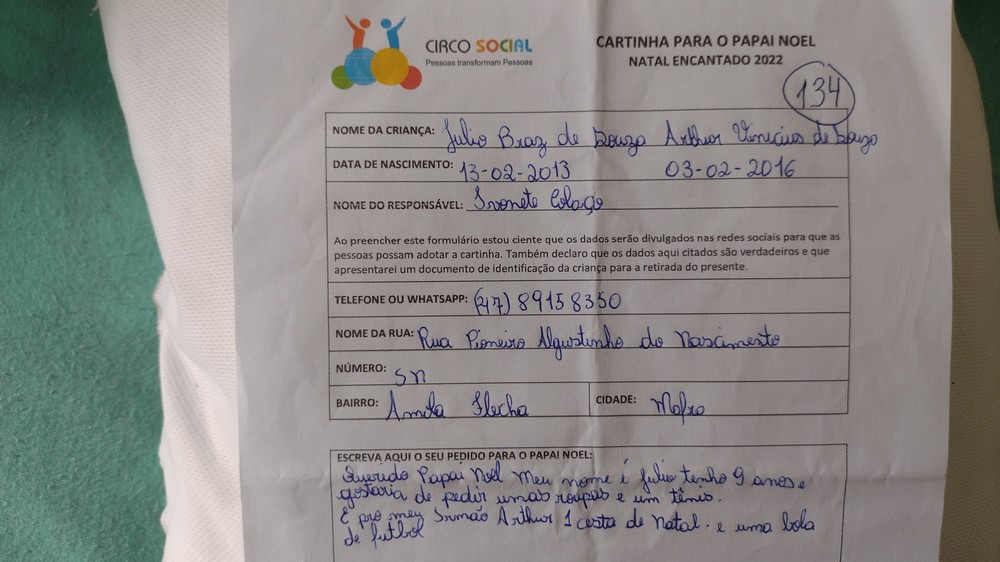 CIRCO SOCIAL
Pessoas transformam Pessoas
CARTINHA PARA O PAPAI NOEL
NATAL ENCANTADO 2022
134
NOME DA CRIANÇA: Julio Braz de Souza Arthur Vinicius de Souza
DATA DE NASCIMENTO: 13-02-2013 03-02-2016
NOME DO RESPONSÁVEL: Ivonete Colaço
Ao preencher este formulário estou ciente que os dados serão divulgados nas redes sociais para que as
pessoas possam adotar a cartinha. Também declaro que os dados aqui citados são verdadeiros e que
apresentarei um documento de identificação da criança para a retirada do presente.
TELEFONE OU WHATSAPP: (47) 89158350
NOME DA RUA: Rua Pioneiro Algustinho do Nascimento
NÚMERO: SN
BAIRRO: Flecha CIDADE: Mafra
ESCREVA AQUI O SEU PEDIDO PARA O PAPAI NOEL:
Querido Papai Noel Meu nome é Julio tenho 9 anos e
gostaria de pedir umas roupas e um tênis.
E pro meu Irmão Arthur 1 cesta de Natal. e uma bola
de futbol